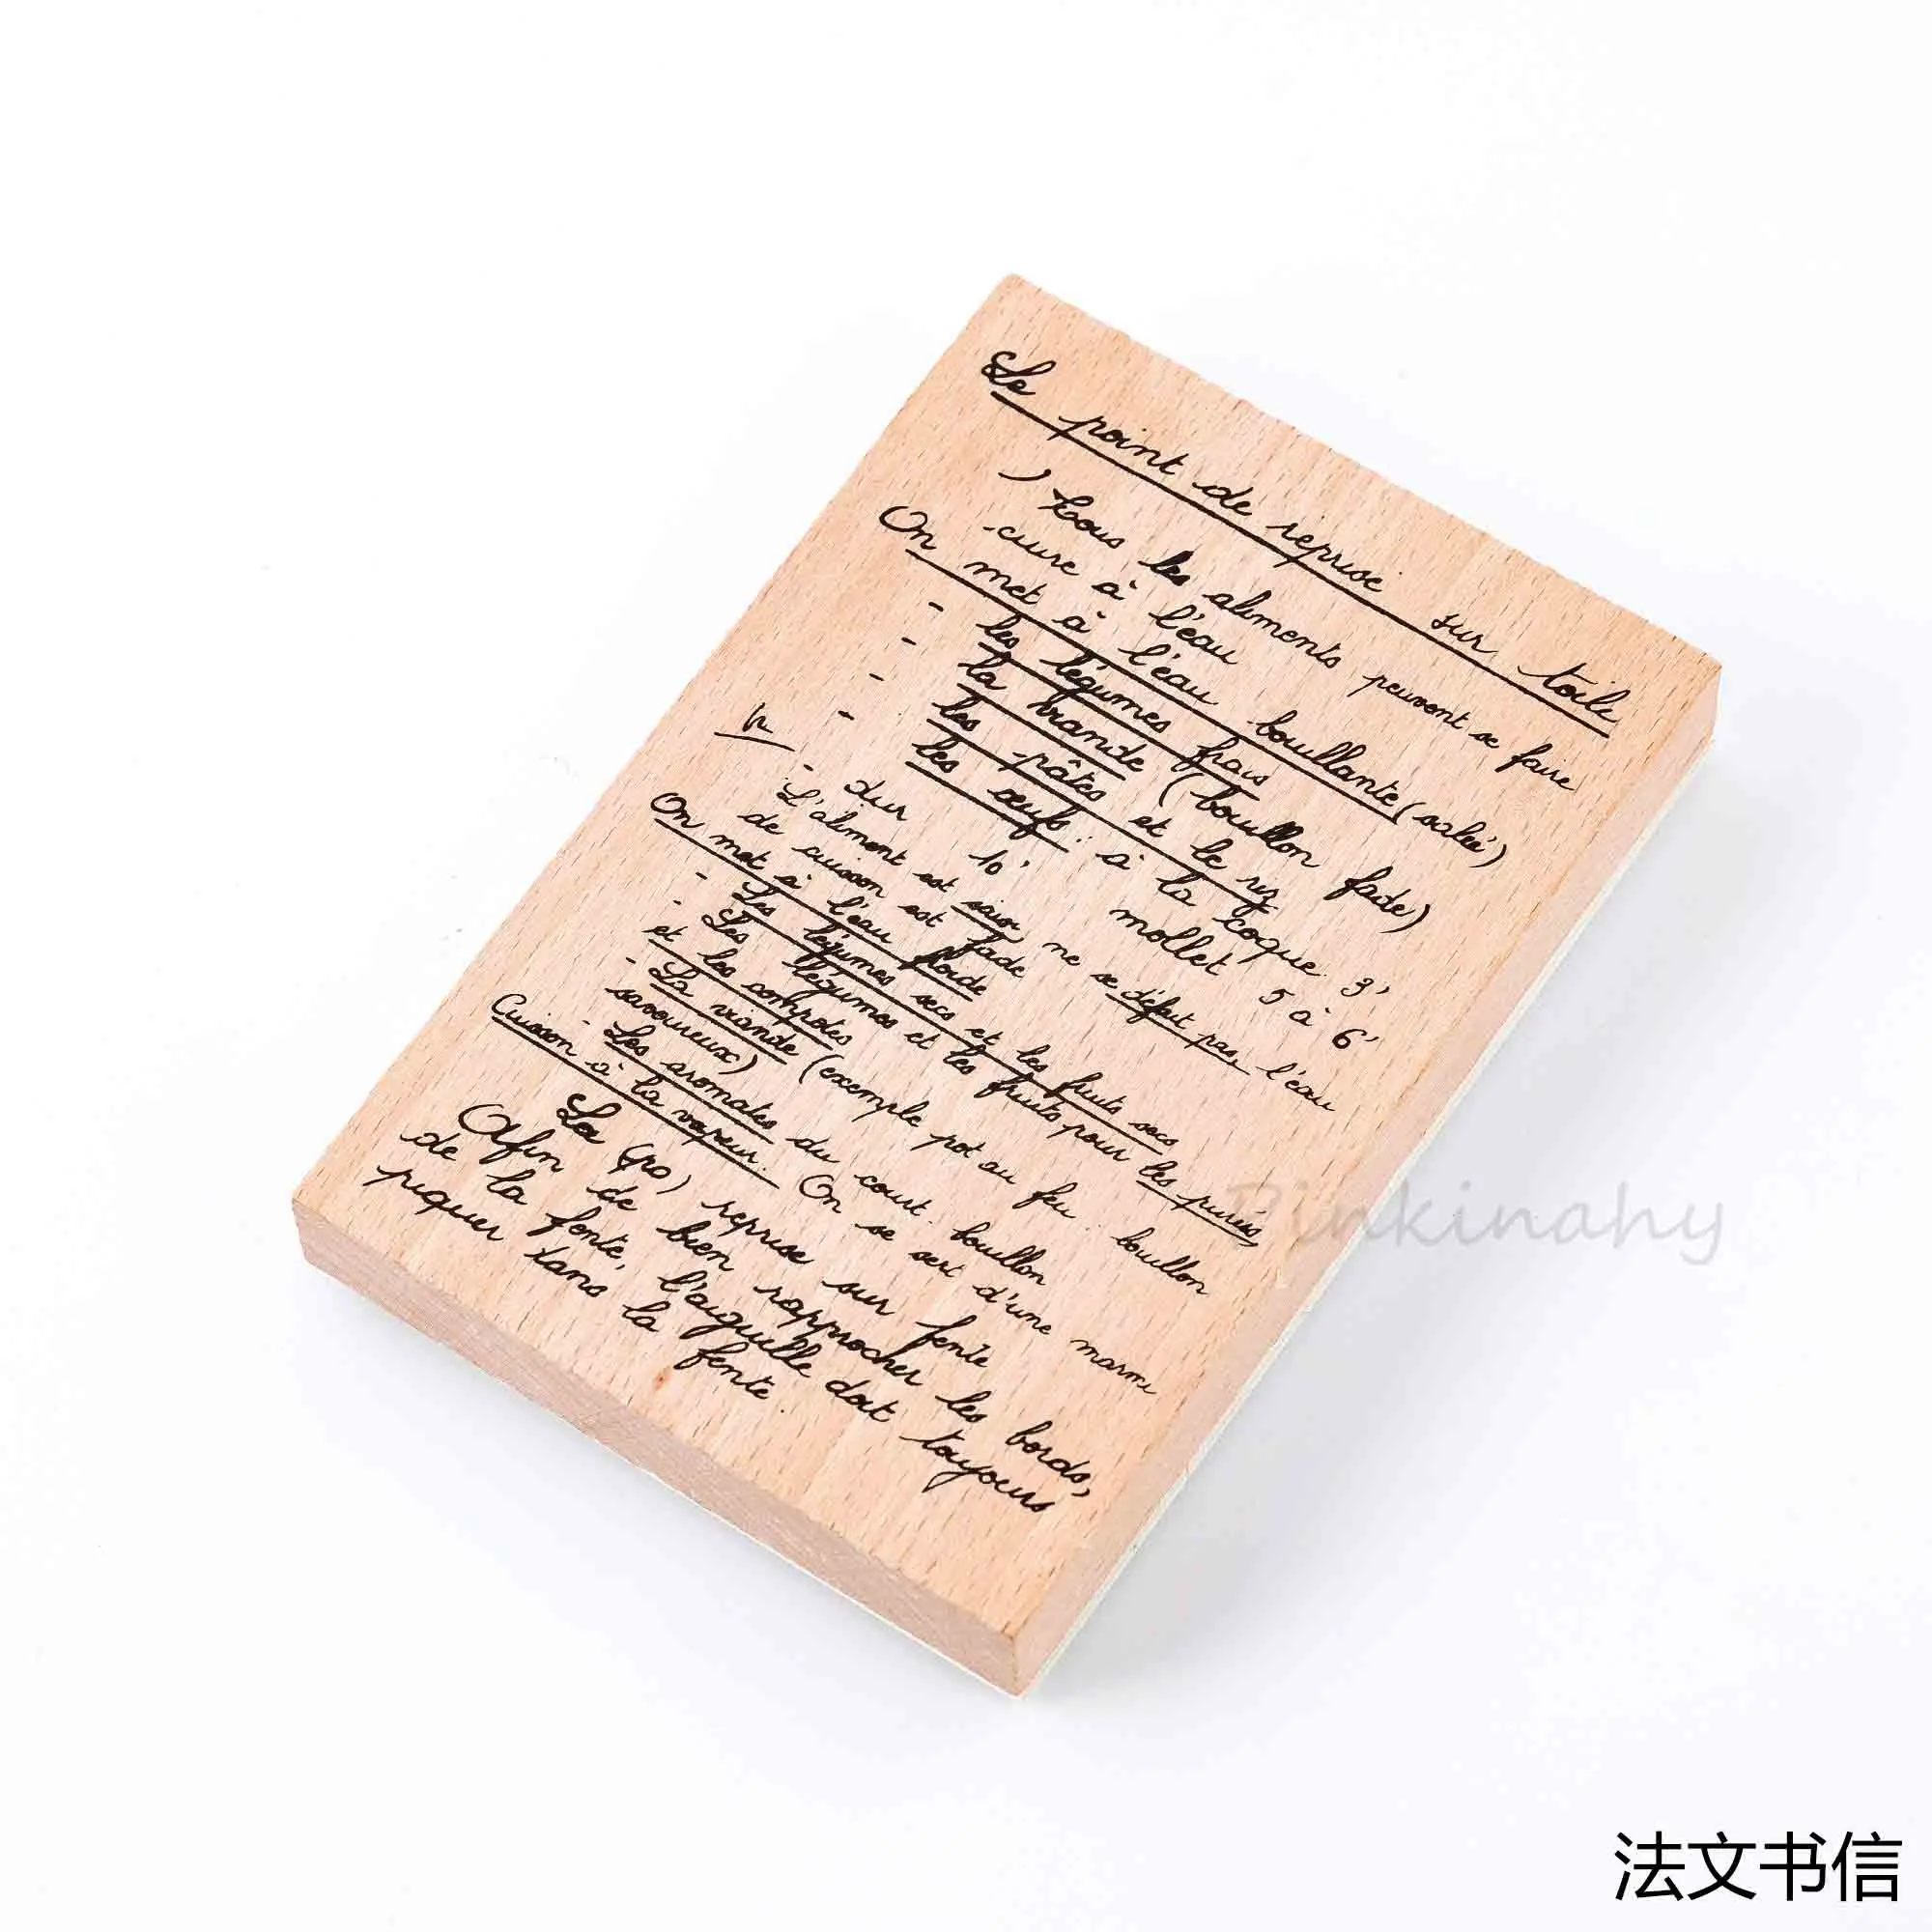 Le point de reprise sur toile
) Tous les aliments peuvent se faire
cuire à l'eau
On met à l'eau bouillante (salée)
- les légumes frais
- la viande (bouillon fade)
- les pâtes et le riz
- les œufs : à la coque 3'
mollet 5 à 6'
- dur 10'
L'aliment est saisi ne se défait pas l'eau
de cuisson est fade
On met à l'eau froide
- Les légumes secs et les fruits secs
- Les légumes et les fruits pour les purées,
et les compotes
- La viande (exemple pot au feu : bouillon
savoureux)
- Les aromates du court-bouillon
Cuisson à la vapeur. On se sert d'une marmi
La (po) reprise sur fente
Afin de bien rapprocher les bords,
de la fente, l'aiguille doit toujours
piquer dans la fente.
Pinkinahy
法文书信